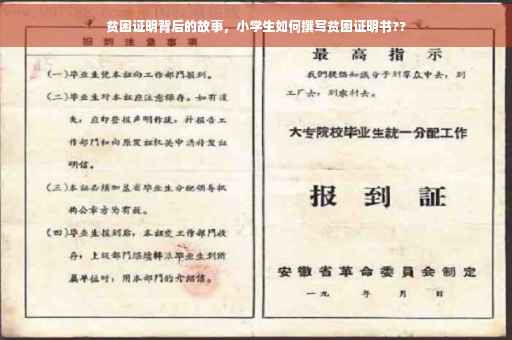 贫困证明背后的故事，小学生如何撰写贫困证明书??
报到注意事项
(一)毕业生凭本证向工作部门报到。
(二)毕业生对本证应注意保存。如有遗
失，应即登报声明作废，并报告工
作部门和向原发证机关申请补发证
明信。
(三)本证必须加盖省毕业生分配领导机
构公章方为有效。
(四)毕业生报到后，本证交工作部门收
存；上级部门
毕业生到所
属单位时，用本部门的介绍信。
最高指示
我们提倡知识分子到群众中去，到
工厂去，到农村去。
大专院校毕业生统一分配工作
报到证
安徽省革命委员会制定
一九 年 月 日